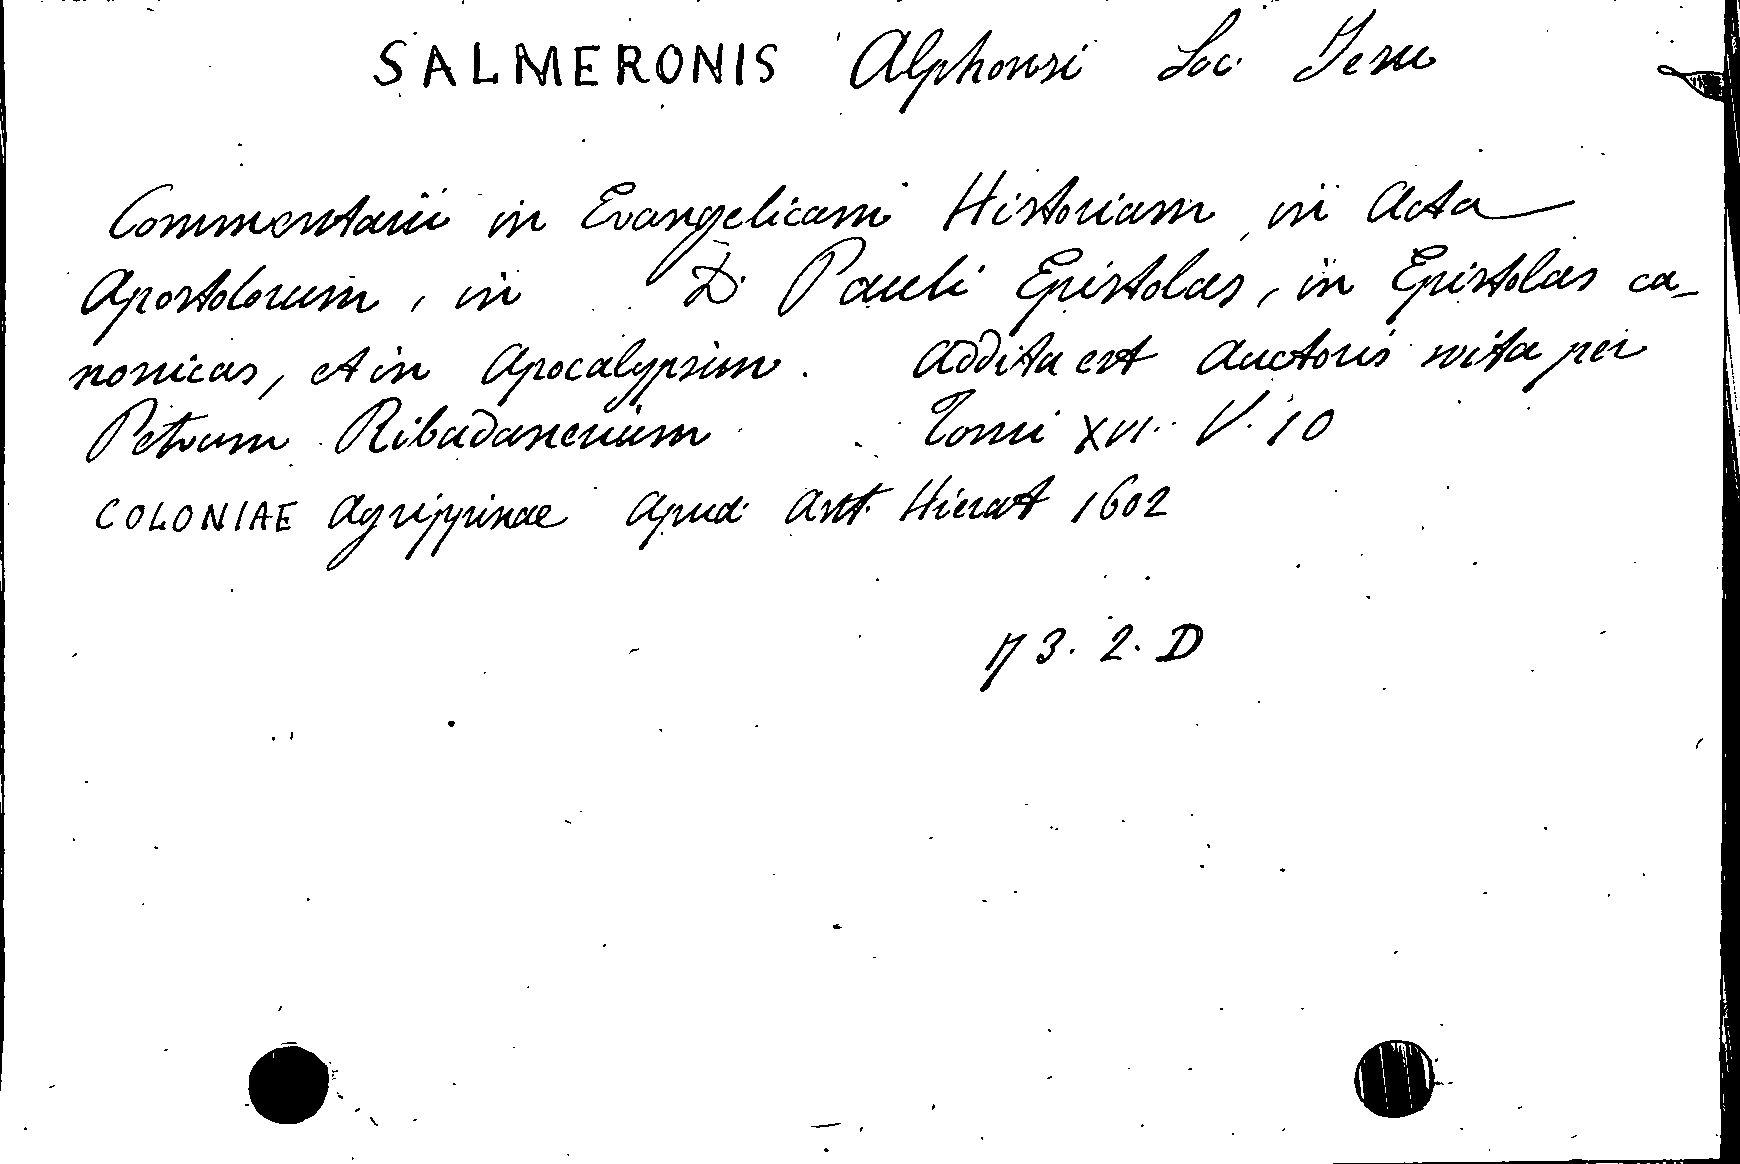 SALMERONIS Alphonsi Soc. Jesu
Commentarii in Evangelicam Historiam, in Acta
Apostolorum, in D. Pauli Epistolas, in Epistolas ca-
nonicas, et in Apocalypsim. Addita est Auctoris vita per
Petrum Ribadaneriam Tomi XVI. V. 10
COLONIAE Agrippinae apud Ant. Hierat 1602
73. 2. D